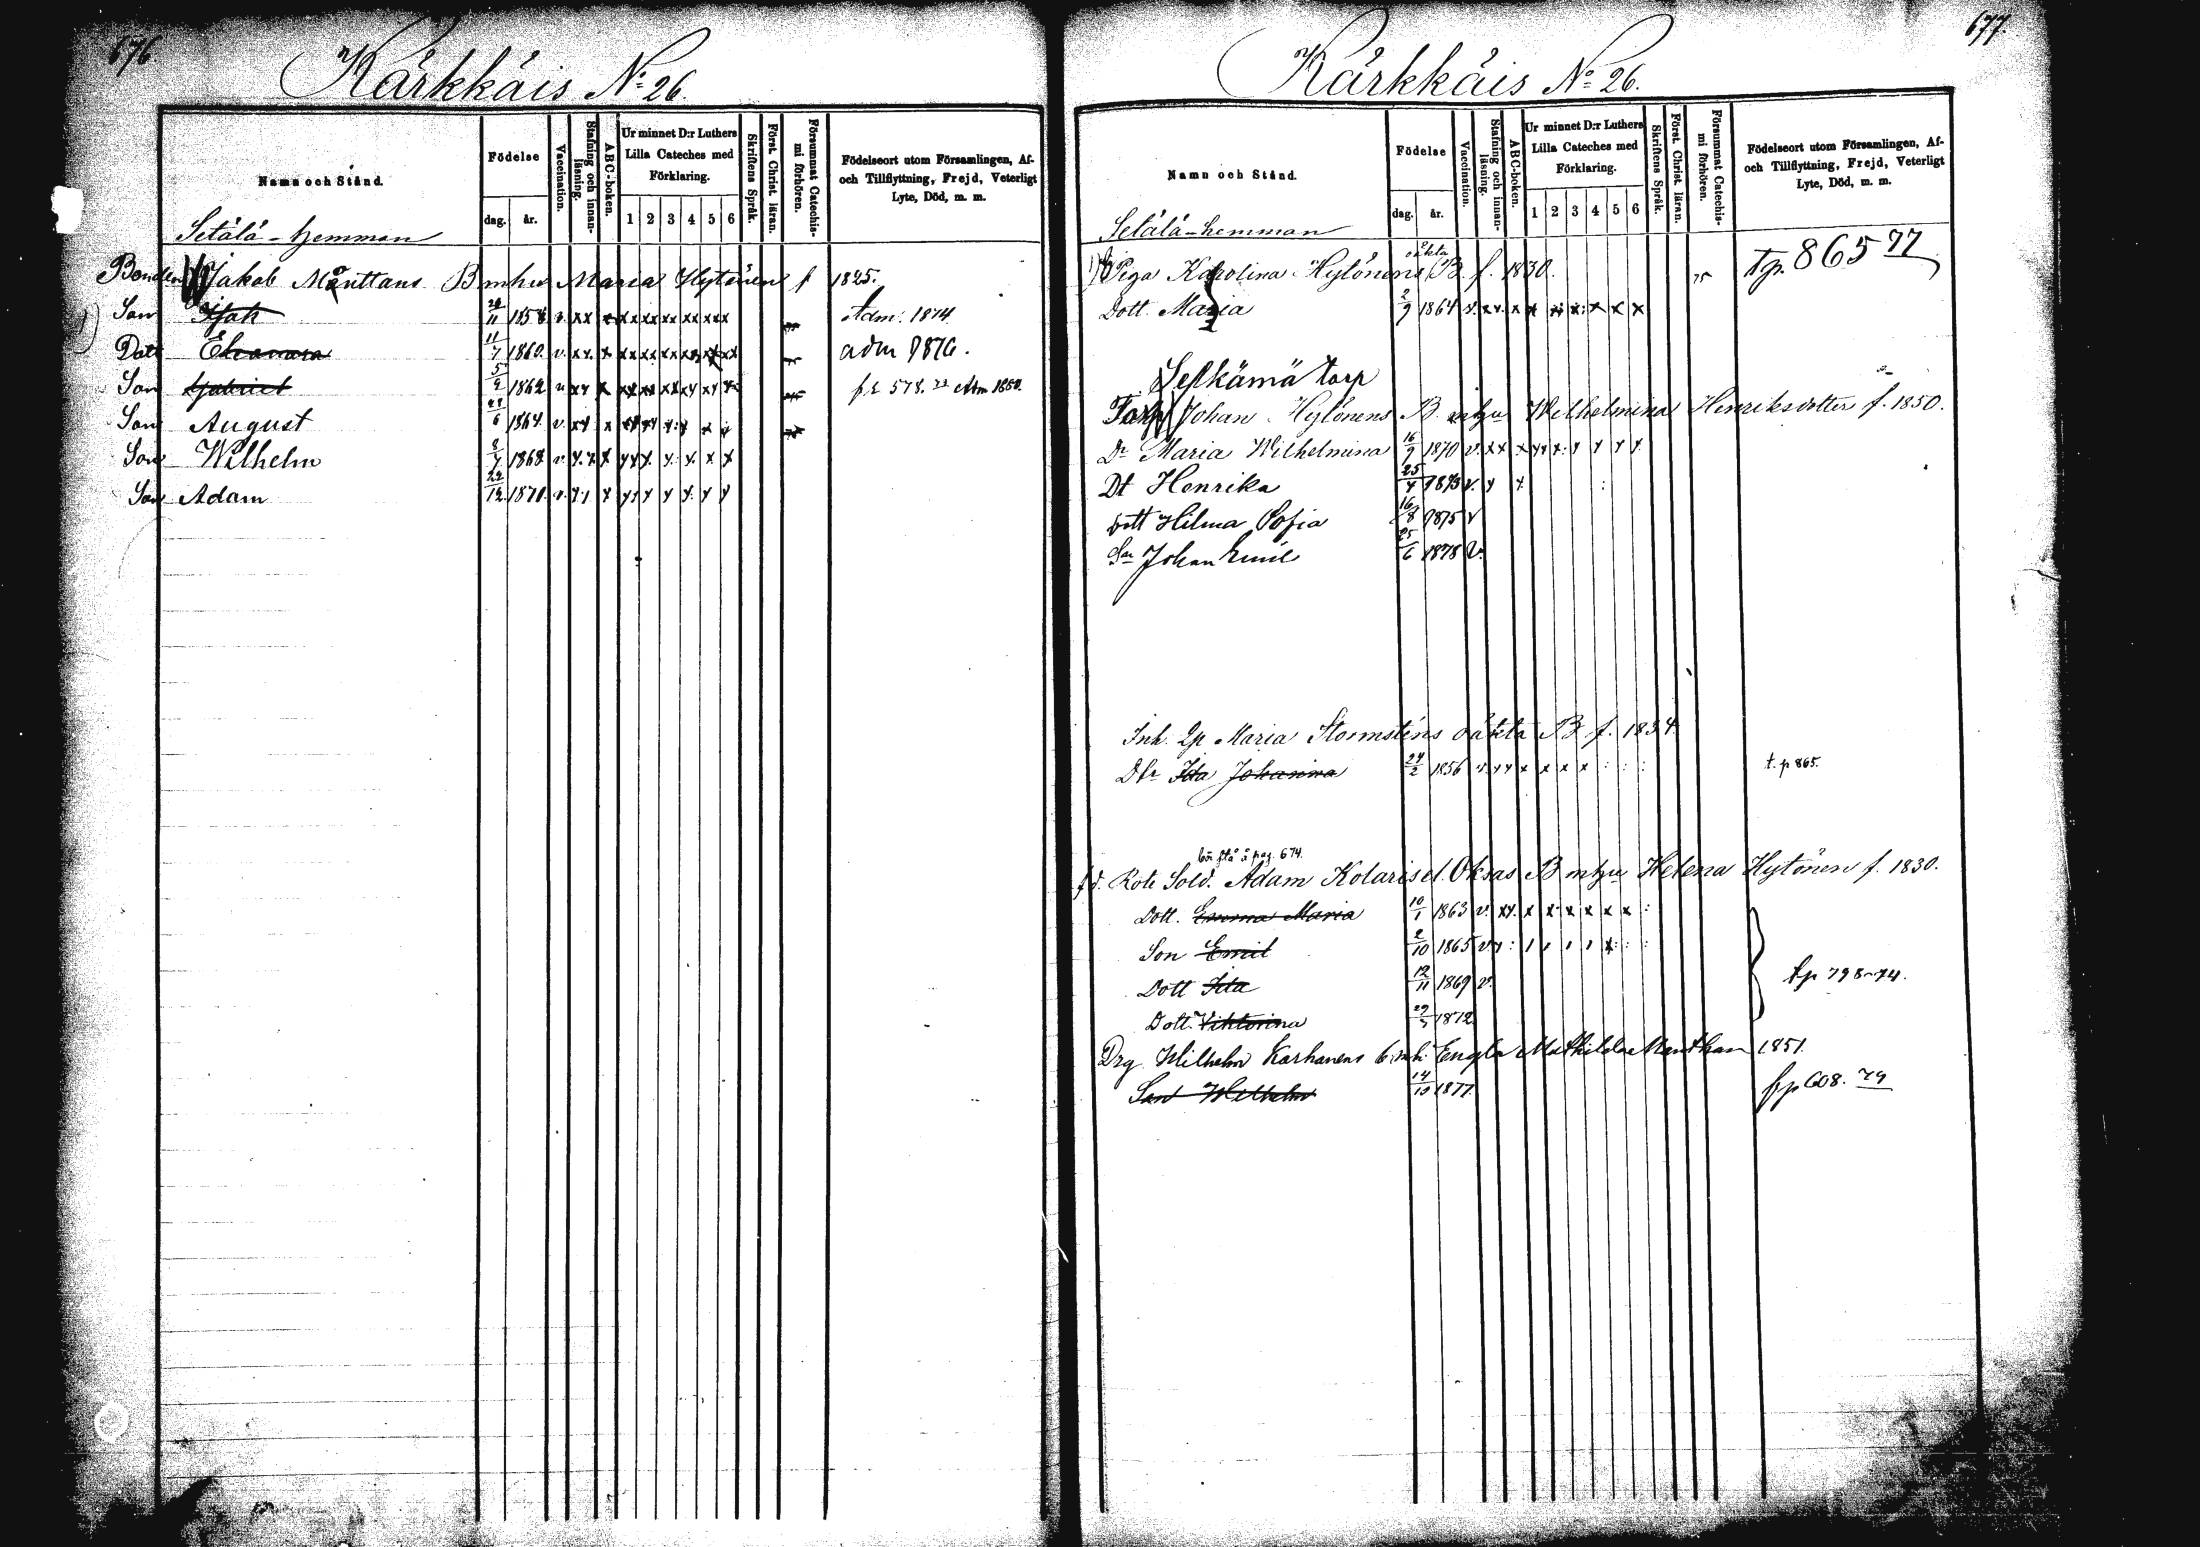 676.
Kärkkäis No 26.
Namn och Stånd.
Födelse
dag. år.
Vaccination.
Stafning och innanläsning.
ABC-boken.
Ur minnet D:r Luthers Lilla Cateches med Förklaring.
1 2 3 4 5 6
Skriftens Språk.
Först. Christ. läran.
Försummat Catechismi förhören.
Födelseort utom Församlingen, Af- och Tillflyttning, Frejd, Veterligt Lyte, Död, m. m.
Setälä-hemman
Bonden Jakob Mänttäns B m hu Maria Hytönen f 1825.
Son Isak 1858 v. xx x xx xx xx xx xxx Adm. 1874
Dott Eleonora 11/7 1860. v. xx. x xx xx xx xx xx adm 1876.
Son Gabriel 5/2 1862 v xx x xx xx xx xx xx 578. Adm 1880.
Son August 1864. v. xx x
Son Wilhelm 1868 v. x. x. x
Son Adam 22/12 1871
677.
Kärkkäis No 26.
Namn och Stånd.
Födelse
dag. år.
Vaccination.
Stafning och innanläsning.
ABC-boken.
Ur minnet D:r Luthers Lilla Cateches med Förklaring.
1 2 3 4 5 6
Skriftens Språk.
Först. Christ. läran.
Försummat Catechismi förhören.
Födelseort utom Församlingen, Af- och Tillflyttning, Frejd, Veterligt Lyte, Död, m. m.
Setälä-hemman
oäkta
Piga Karolina Hytönens B. f. 1830. 75 tp. 865 77
Dott Maria 2/9 1864 v. xx. x x x x x x x
Selkämä torp
Torp Johan Hytönens B. m hu Wilhelmina Henriksdotter f. 1850.
Dr Maria Wilhelmina 16/9 1870 v. xx
Dt Henrika 25/4 1873 v. x x
Dott Hilma Sofia 16/8 1875 v
Sn Johan Emil 25/6 1878 v.
Inh. Qp Maria Stormsténs oäkta B f. 1834.
Dtr Ida Johanna 24/2 1856 v. xx x x x x : : : t. p 865.
bör stå å pag. 674.
f.d. Rote Sold. Adam Kolaris el. Oksas B m hu Helena Hytönen f. 1830.
Dott. Emma Maria 10/1 1863 v. xx. x x x x x x :
Son Emil 2/10 1865 v
Dott Ida 12/11 1869 v.
Dott. Viktorina 1872
tp 798-74.
Drg Wilhelm Karhanens b. m h. Engla Mathilda Manthan 1851.
Son Wilhelm 14/10 1877. fp 608. 79